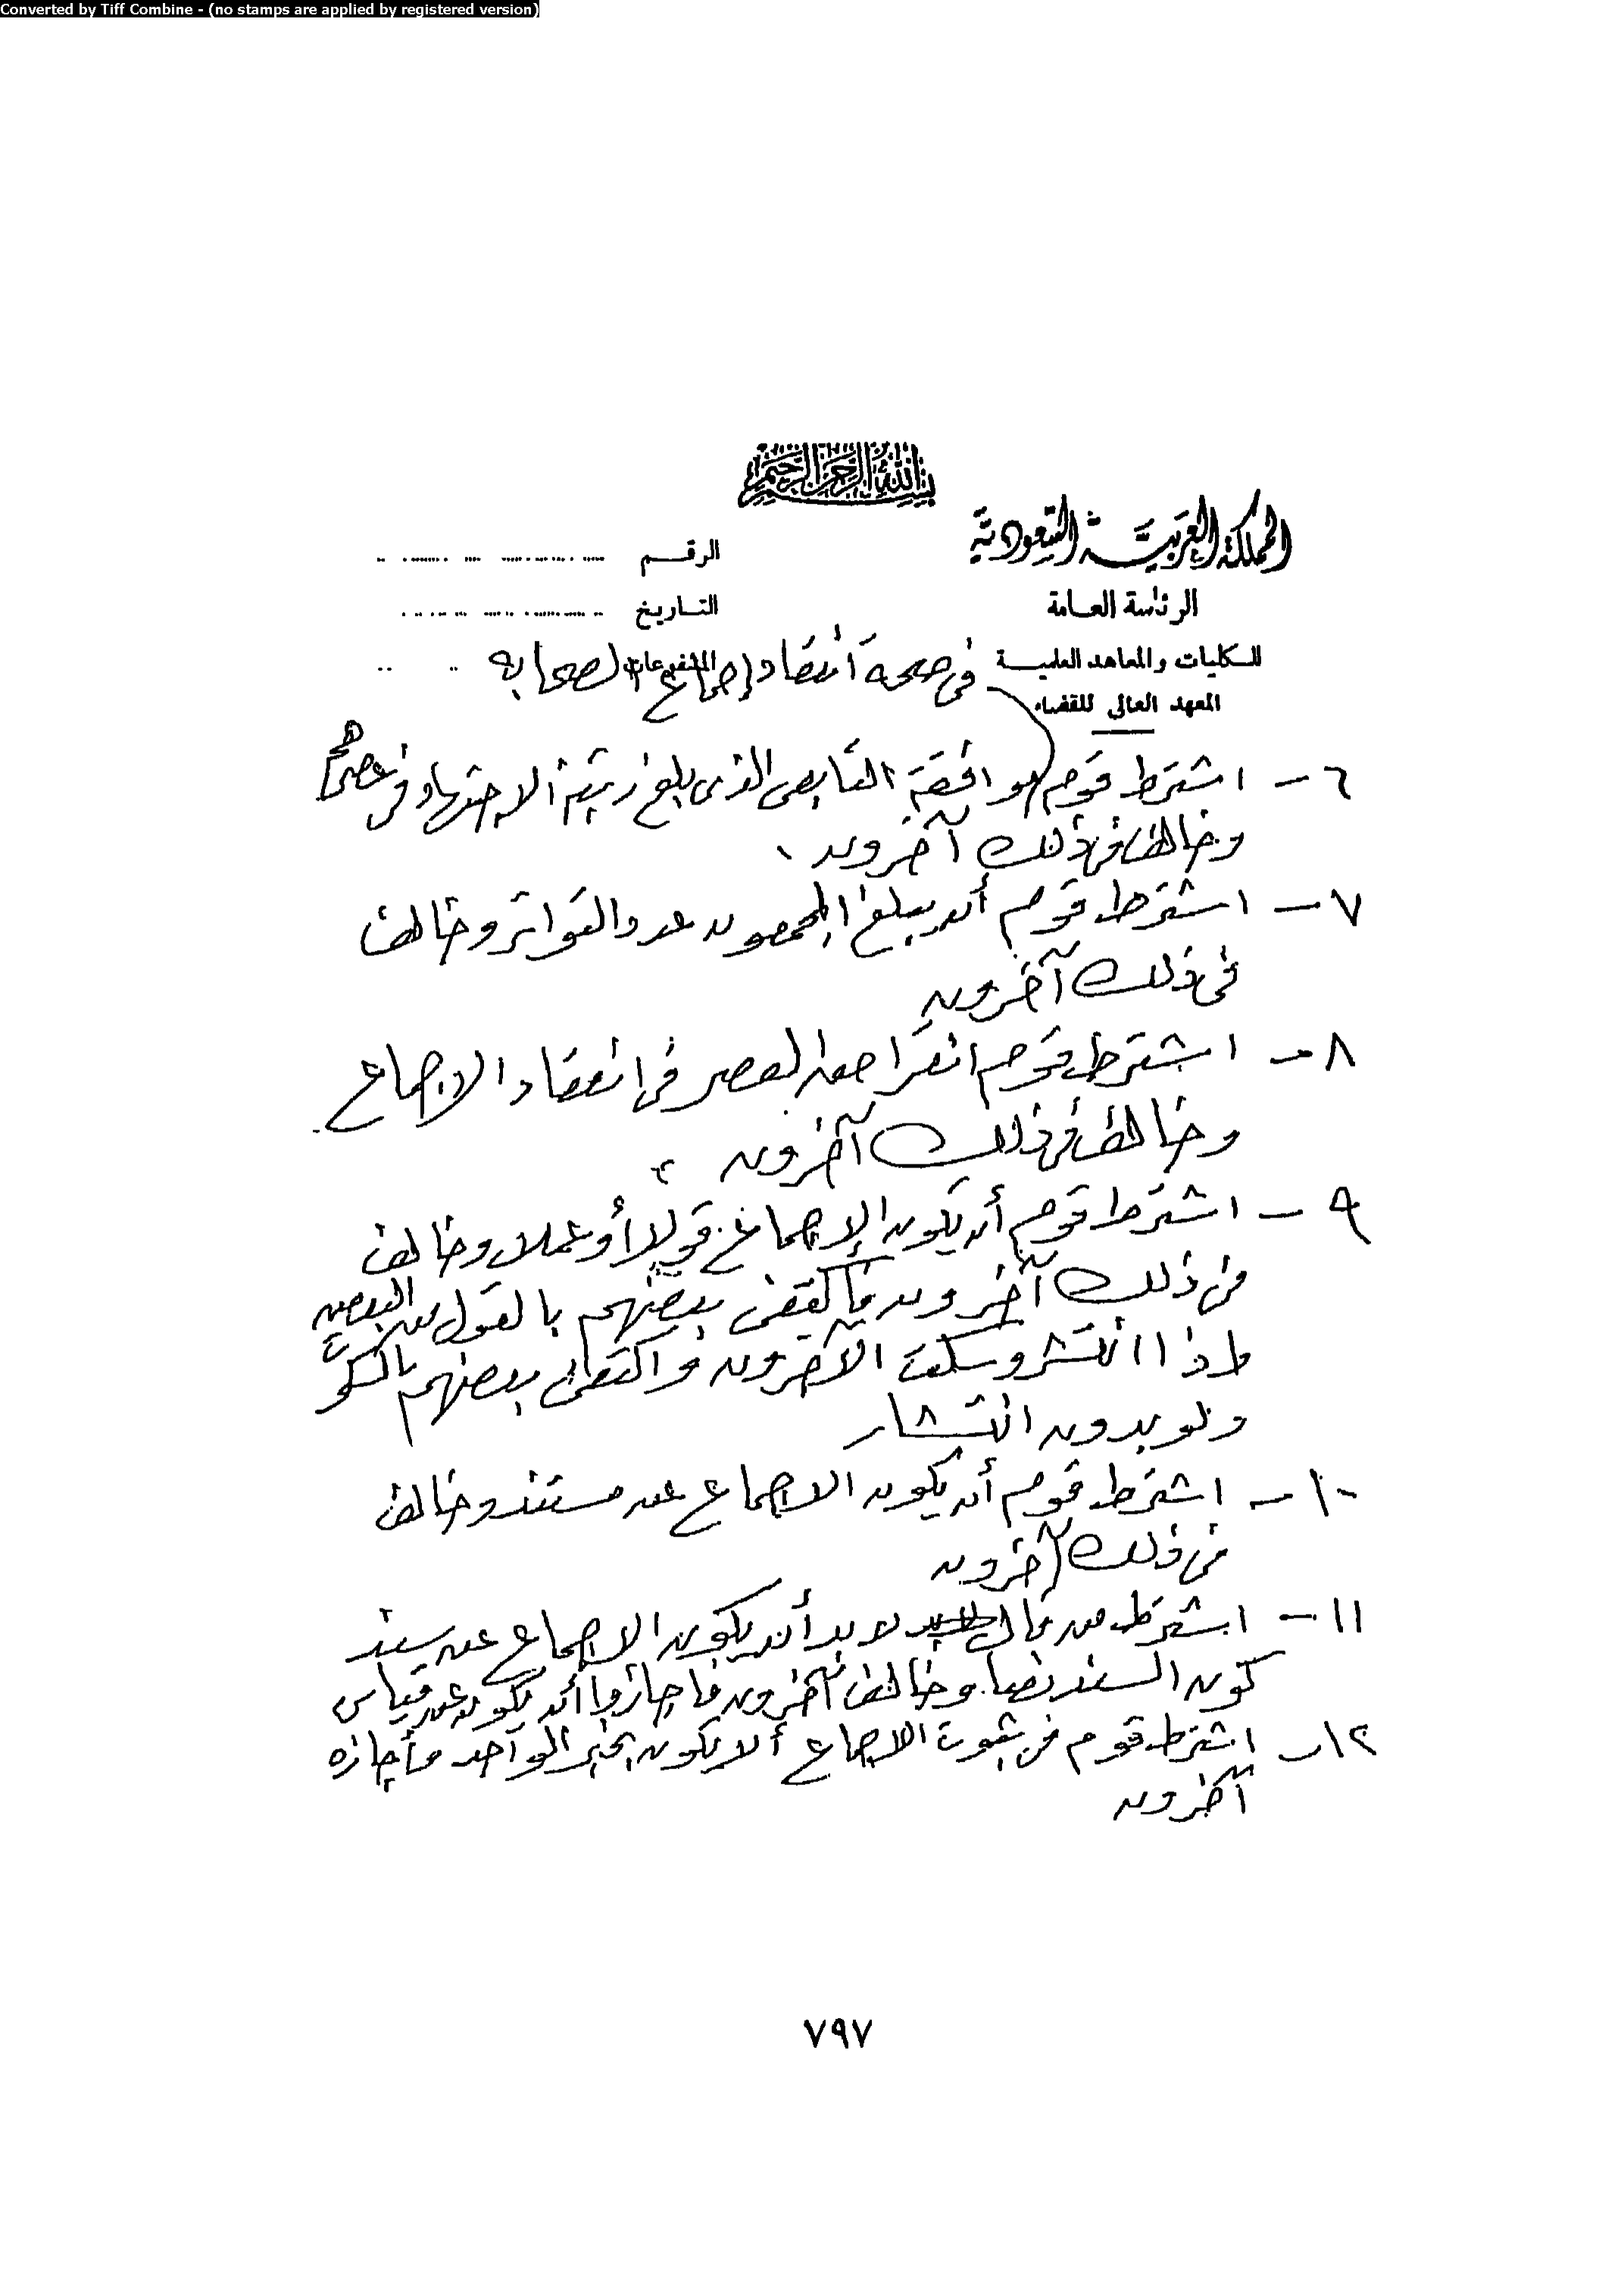 Converted by Tiff Combine - (no stamps are applied by registered version)
بسم الله الرحمن الرحيم
المملكة العربية السعودية
الرئاسة العامة
للكليات والمعاهد العلمية
المعهد العالي للقضاء
الرقم
التاريخ
المشفوعات
في صحة انعقاد إجماع الصحابة
٦ - اشترط قوم موافقة التابعى الذى بلغ رتبة الاجتهاد فى عصرهم
وخالف فى ذلك آخرون .
٧ - اشترط قوم أن يبلغ المجمعون عدد التواتر وخالف
فى ذلك آخرون
٨ - اشترط قوم انقراض العصر فى انعقاد الاجماع
وخالف فى ذلك آخرون
٩ - اشترط قوم أن يكون الإجماع قولا أو عملا وخالف
فى ذلك آخرون فاكتفى بعضهم بالقول من البعض
إذا انتشر وسكت الآخرون واكتفى بعضهم بالسكوت
ولو بدون انتشار
١٠ - اشترط قوم أن يكون الاجماع عن مستند وخالف
فى ذلك آخرون
١١ - اشترط من قال لابد أن يكون الاجماع عن سند
كون السند نصا وخالف آخرون فاجازوا أن يكون عن قياس
١٢ - اشترط قوم فى ثبوت الاجماع ألا يكون بخبر الواحد وأجازه
آخرون
٧٩٧